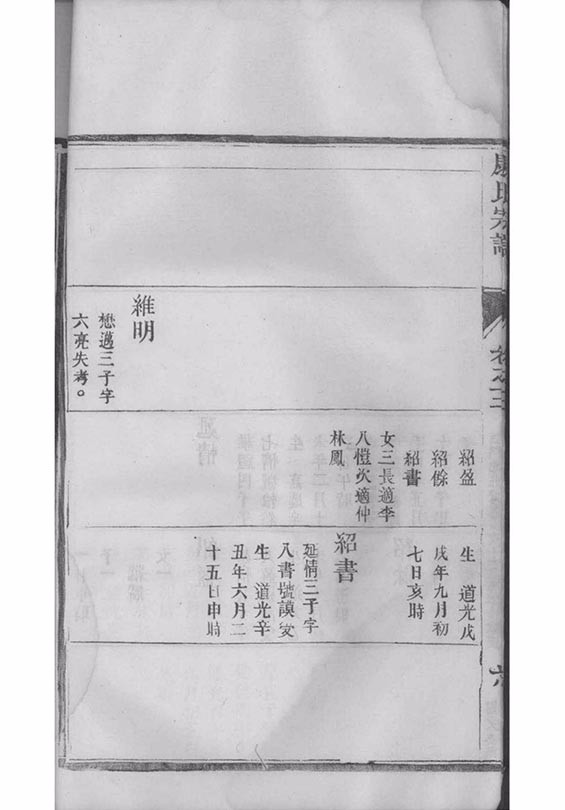 氏宗譜
卷之三
六
維明
懋邁三子字
六亮失考。
紹盈
紹餘
紹書
女三長適李
八愷次適仲
林鳳
生 道光戊
戌年九月初
七日亥時
紹書
延情三子字
入書號謨安
生 道光辛
丑年六月二
十五日申時